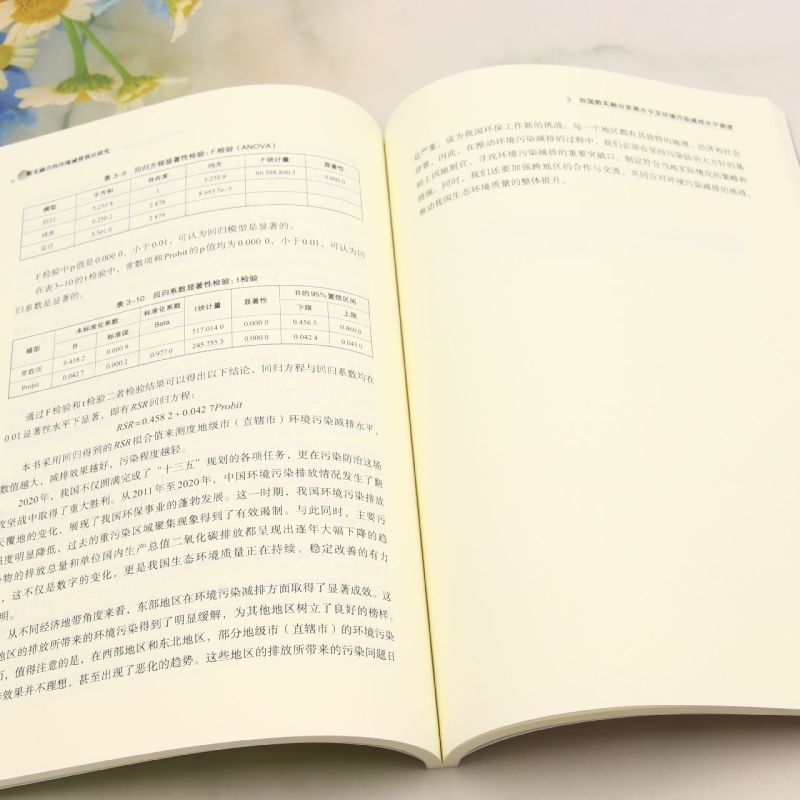 数实融合的环境减排效应研究
表 3-9 回归方程显著性检验：F 检验（ANOVA）
模型 平方和 自由度 均方 F 统计量 显著性
回归 5.250 8 1 5.250 8 60 398.890 5 0.000 0
残差 0.250 2 2 878 8.693 5e-5
总计 5.501 0 2 879
F 检验中 p 值是 0.000 0，小于 0.01，可认为回归模型是显著的。
在表 3-10 的 t 检验中，常数项和 Probit 的 p 值均为 0.000 0，小于 0.01，可认为回
归系数是显著的。
表 3-10 回归系数显著性检验：t 检验
模型 未标准化系数 标准化系数 t 统计量 显著性 B 的 95% 置信区间
B 标准误 Beta 下限 上限
常数项 0.458 2 0.000 9 517.014 0 0.000 0 0.456 5 0.460 0
Probit 0.042 7 0.000 2 0.977 0 245.755 3 0.000 0 0.042 4 0.043 0
通过 F 检验和 t 检验二者检验结果可以得出以下结论，回归方程与回归系数均在
0.01 显著性水平下显著，即有 RSR 回归方程：
RSR=0.458 2+0.042 7Probit
本书采用回归得到的 RSR 拟合值来测度地级市（直辖市）环境污染减排水平，
数值越大，减排效果越好，污染程度越轻。
2020 年，我国不仅圆满完成了“十三五”规划的各项任务，更在污染防治这场
攻坚战中取得了重大胜利。从 2011 年至 2020 年，中国环境污染排放情况发生了翻
天覆地的变化，展现了我国环保事业的蓬勃发展。这一时期，我国环境污染排放
强度明显降低，过去的重污染区域聚集现象得到了有效遏制。与此同时，主要污
物的排放总量和单位国内生产总值二氧化碳排放都呈现出逐年大幅下降的趋
，这不仅是数字的变化，更是我国生态环境质量正在持续、稳定改善的有力
明。
从不同经济地带角度来看，东部地区在环境污染减排方面取得了显著成效。这
地区的排放所带来的环境污染得到了明显缓解，为其他地区树立了良好的榜样。
而，值得注意的是，在西部地区和东北地区，部分地级市（直辖市）的环境污染
效果并不理想，甚至出现了恶化的趋势。这些地区的排放所带来的污染问题日
3 我国数实融合发展水平及环境污染减排水平测度
益严重，成为我国环保工作新的挑战。每一个地区都有其独特的地理、经济和社会
背景，因此，在推动环境污染减排的过程中，我们必须在坚持污染防治大方针的基
础上因地制宜，寻找环境污染减排的重要突破口，制定符合当地实际情况的策略和
措施。同时，我们还要加强跨地区的合作与交流，共同应对环境污染减排的挑战，
推动我国生态环境质量的整体提升。